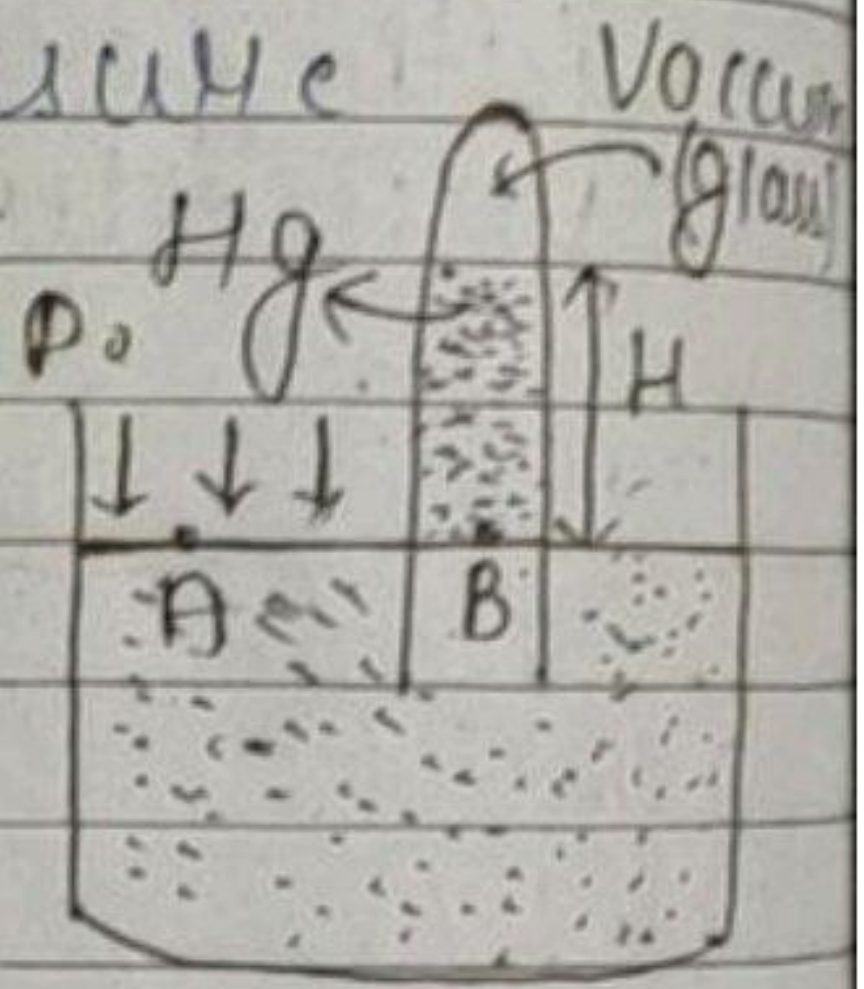 Vaccum
(glass)
Hg
P₀
H
A
B